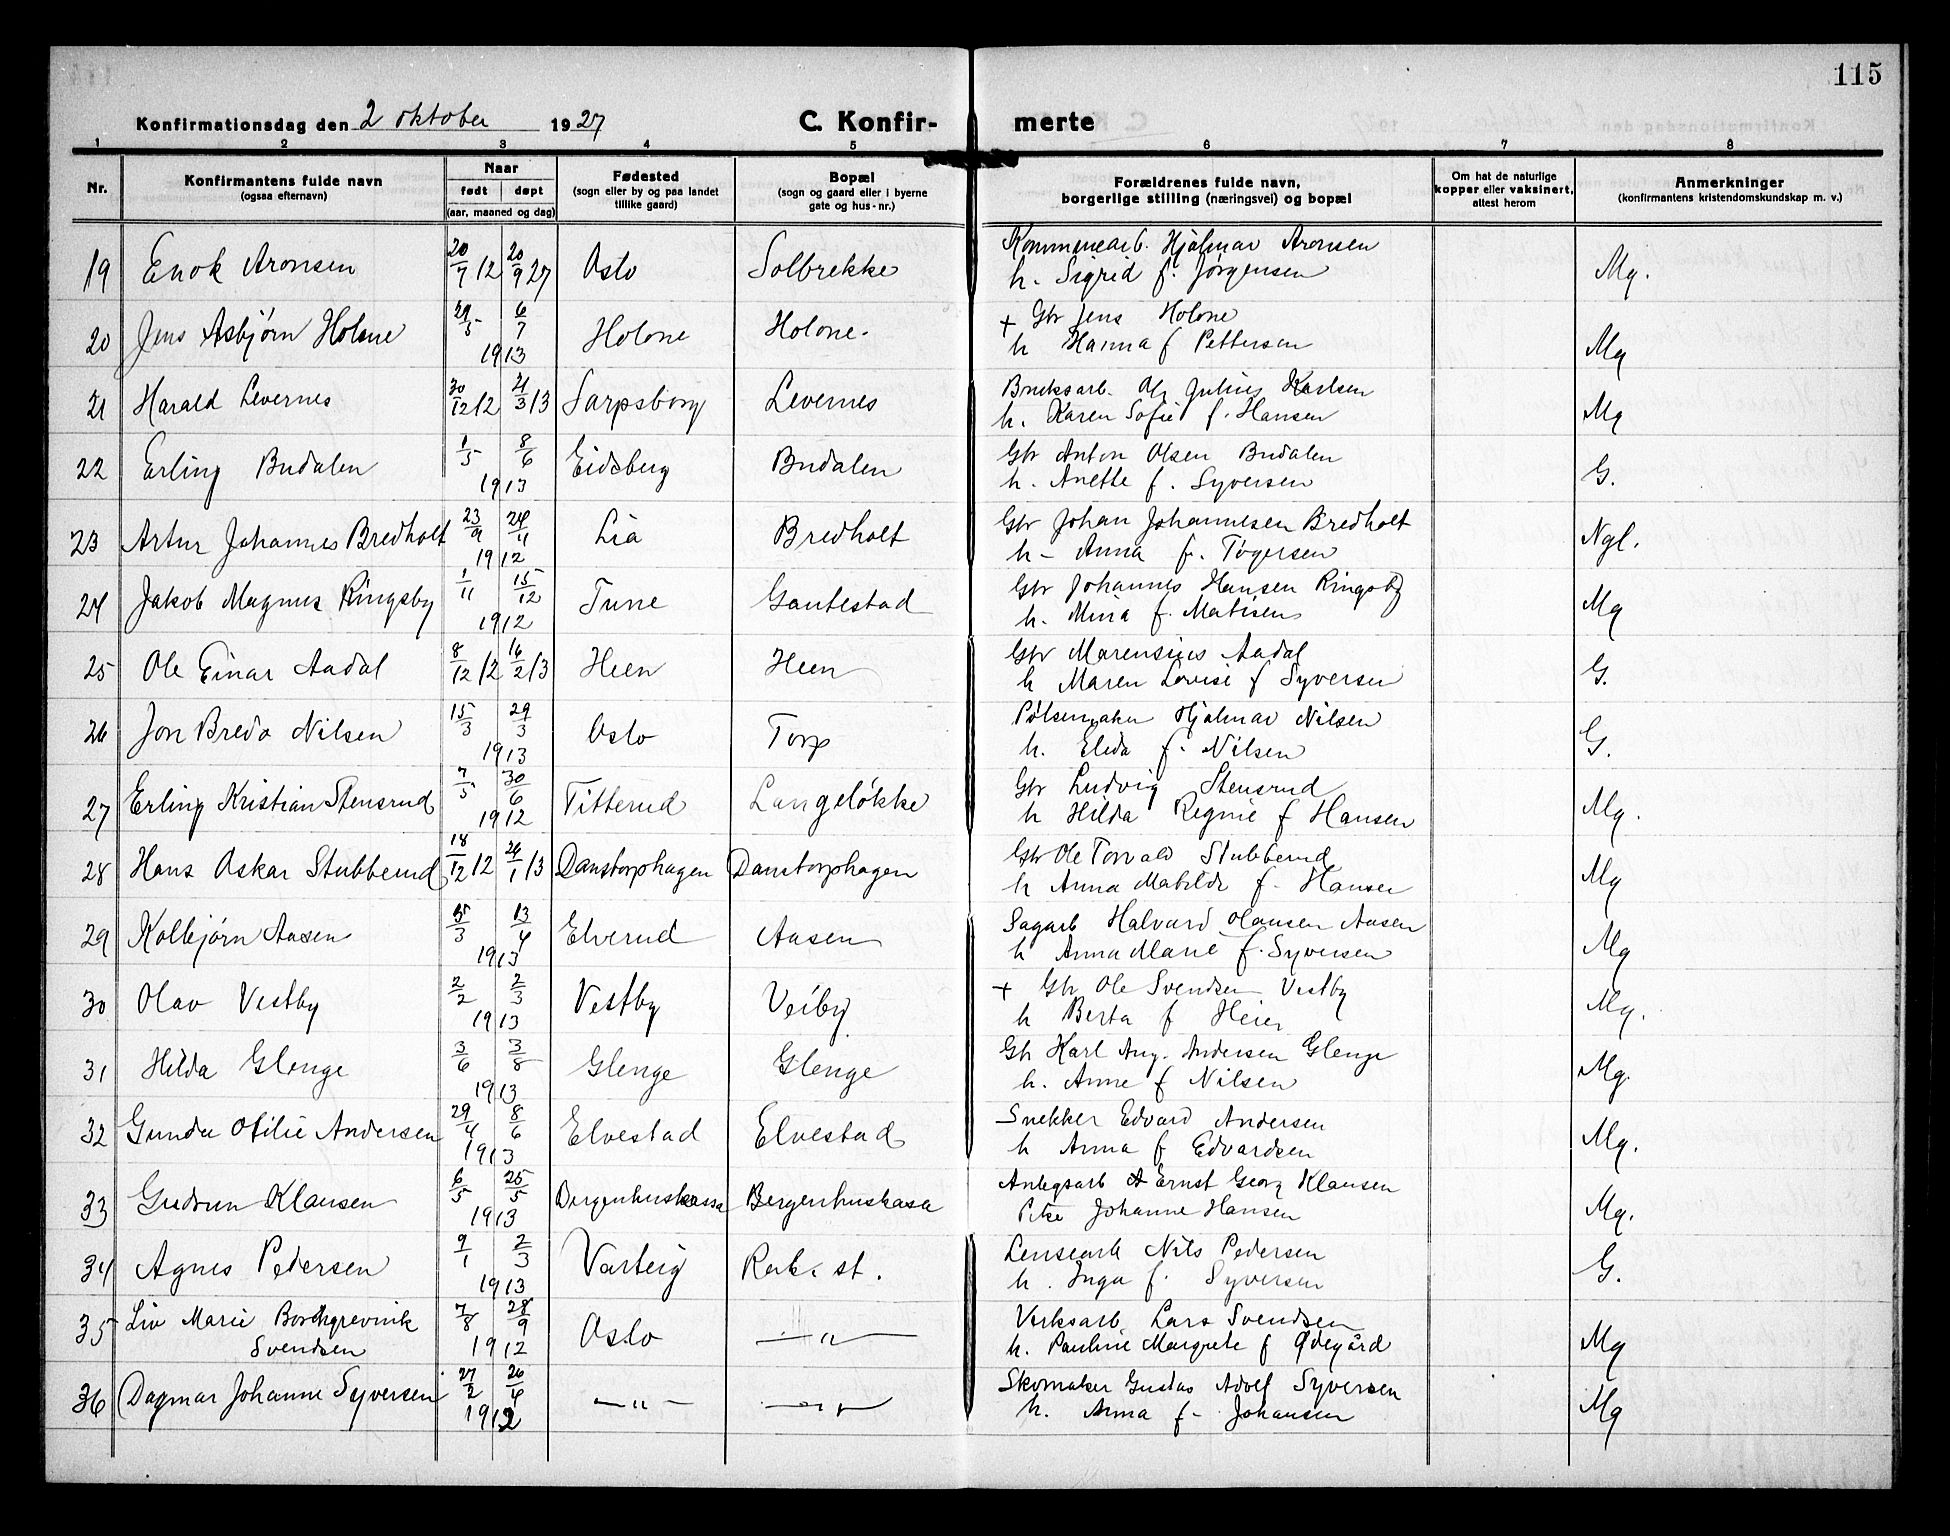 115
Konfirmationsdag den 2 oktober 1927 C. Konfir- merte
1 2 3 4 5 6 7 8
Nr. Konfirmantens fulde navn (ogsaa efternavn) Naar født døpt (aar, maaned og dag) Fødested (sogn eller by og paa landet tillike gaard) Bopæl (sogn og gaard eller i byerne gate og hus-nr.) Forældrenes fulde navn, borgerlige stilling (næringsvei) og bopæl Om hat de naturlige kopper eller vaksinert, attest herom Anmerkninger (konfirmantens kristendomskundskap m. v.)
19 Enok Aronsen 20/7 12 20/9 27 Oslo Solbrekke Kommunearb. Hjalmar Aronsen
h. Sigrid f. Jörgensen Mg.
20 Jens Asbjørn Holone 29/5 6/7 1913 Holone Holone. + Gbr Jens Holone
h Hanna f Pettersen Mg
21 Harald Levernes 30/12 12 21/3 13 Sarpsborg Levernes Bruksarb. Julius Karlsen
h. Karen Sofie f. Hansen Mg
22 Erling Budalen 1/5 8/6 1913 Eidsberg Budalen Gbr Anton Olsen Budalen
h. Anette f. Syversen G.
23 Artur Johannes Bredholt 23/9 24/11 1912 Lia Bredholt Gbr Johan Johannesen Bredholt
h - Anna f. Togersen Ngl.
24 Jakob Magnus Ringsby 1/11 15/12 1912 Tune Gautestad Gbr Johannes Hansen Ringsby
h. Mina f. Matisen Mg
25 Ole Einar Aadal 8/12 12 16/2 13 Heen Heen Gbr Marensius Aadal
h Maren Lovise f Syversen G.
26 Jon Bredo Nilsen 15/3 29/3 1913 Oslo Torp Pølsemaker Hjalmar Nilsen
h. Elida f. Nilsen G.
27 Erling Kristian Stensrud 7/5 30/6 1912 Titterud Langeløkke Gbr Ludvig Stensrud
h Hilda Regine f Hansen Mg.
28 Hans Oskar Stubberud 18/12 12 26/1 13 Danstorphagen Danstorphagen Gbr Ole Torvald Stubberud
h Anna Matilde f. Hansen Mg
29 Kolbjørn Aasen 5/3 13/4 1913 Elverud Aasen Sagarb Halvard Olausen Aasen
h Anna Marie f. Syversen Mg
30 Olav Vestby 2/2 2/3 1913 Vestby Veiby + Gbr Ole Svendsen Vestby
h Berta f Heier Mg.
31 Hilda Glenge 3/6 3/8 1913 Glenge Glenge Gb Karl Aug. Andersen Glenge
h. Anne f Nilsen Mg.
32 Gunda Otilie Andersen 29/4 8/6 1913 Elvestad Elvestad Snekker Edvard Andersen
h Anna f Edvardsen Mg.
33 Gudrun Klausen 6/5 25/5 1913 Bergenhuskassa Bergenhuskasa Anlegsarb Ernst Georg Klausen
Pike Johanne Hansen Mg.
34 Agnes Pedersen 9/1 2/3 1913 Varteig Rak. st. Lensearb Nils Pedersen
h. Inga f. Syversen G.
35 Liv Marie Borchgrevink
Svendsen 7/8 28/9 1912 Oslo — " — Verksarb. Lars Svendsen
h. Pauline Margrete f Ødegård Mg
36 Dagmar Johanne Syversen 27/2 26/4 1912 — " — — " — Skomaker Gustav Adolf Syversen
h. Anna f- Johansen Mg